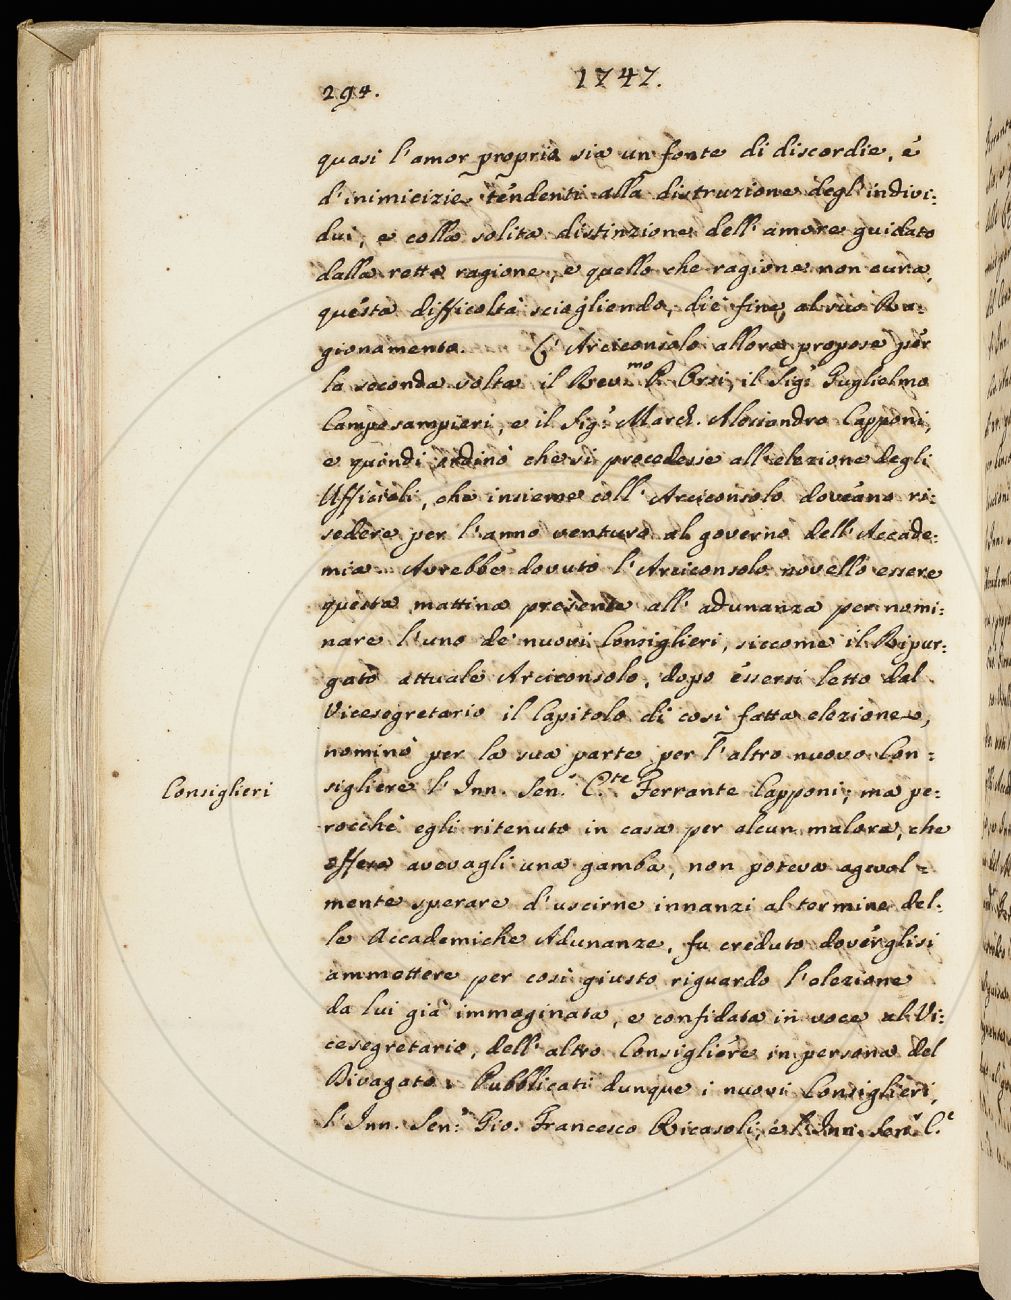 294.
1747.
quasi l'amor proprio sia un fonte di discordie, e
d'inimicizie tendenti alla distruzione degl'indivi:
dui, e colla solita distinzione dell'amore guidato
dalla retta ragione, e quello che ragione non cura,
questa difficoltà sciogliendo, diè fine al suo Ra:
gionamento. L'Arciconsolo allora propose per
la seconda volta il Rev.mo P. Orsi, il Sig.r Guglielmo
Camposampieri, e il Sig.r March. Alessandro Capponi,
e quindi ordinò che si procedesse all'elezione degli
Uffiziali, che insieme coll'Arciconsolo doveano ri:
sedere per l'anno venturo al governo dell'Accade:
mia. Avrebbe dovuto l'Arciconsolo novello essere
questa mattina presente all'adunanza per nomi:
nare l'uno de' nuovi Consiglieri, siccome il Ripur:
gato attuale Arciconsolo, dopo essersi letto dal
Vicesegretario il Capitolo di così fatta elezione,
nominò per la sua parte per l'altro nuovo Con:
Consiglieri
sigliere l'Inn. Sen.r C.te Ferrante Capponi; ma pe:
rocchè egli ritenuto in casa per alcun malore, che
offeso avevagli una gamba, non poteva agevol:
mente sperare d'uscirne innanzi al termine del:
le Accademiche Adunanze, fu creduto doverglisi
ammettere per così giusto riguardo l'elezione
da lui già immaginata, e confidata in voce al Vi:
cesegretario, dell'altro Consigliere in persona del
Divagato. Pubblicati dunque i nuovi Consiglieri,
l'Inn. Sen.r Gio. Francesco Ricasoli, e l'Inn. Sen.r C.e